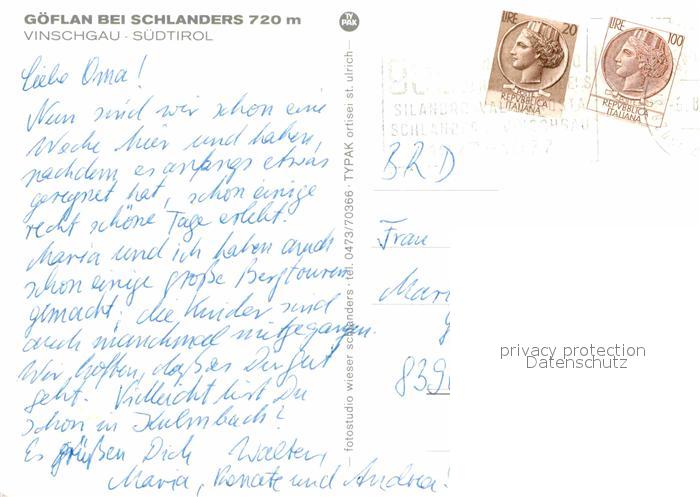 GÖFLAN BEI SCHLANDERS 720 m
VINSCHGAU · SÜDTIROL
TY
PAK
Liebe Oma!
Nun sind wir schon eine
Woche hier und haben,
nachdem es anfangs etwas
geregnet hat, schon einige
recht schöne Tage erlebt.
Maria und ich haben auch
schon einige große Bergtouren
gemacht, die Kinder sind
auch manchmal mitgegangen.
Wir hoffen, daß es Dir gut
geht. Vielleicht bist Du
schon in Kulmbach?
Es grüßen Dich Walter,
Maria, Renate und Andrea!
fotostudio wieser schlanders · tel. 0473/70366 · TYPAK ortisei st. ulrich
LIRE 20
REPVBBLICA
ITALIANA
LIRE 100
REPVBBLICA
ITALIANA
SILANDRO VAL
SCHLANDERS VINSCHGAU
BRD
Frau
Mari
839
privacy protection
Datenschutz